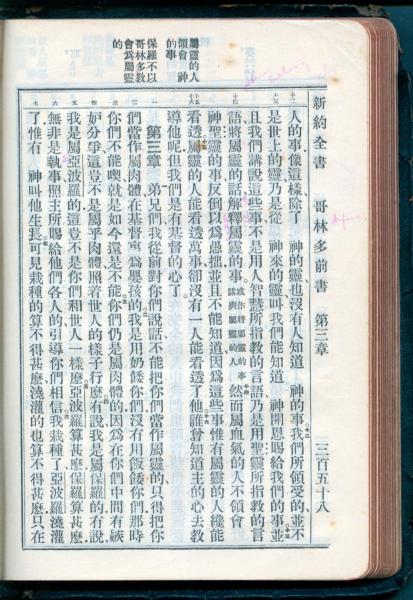 新約全書 哥林多前書 第三章 三百五十八
屬靈的人
領會 神
的事
保羅不以
哥林多教
會為屬靈
的
人的事像這樣除了 神的靈也沒有人知道 神的事我們所領受的並不
是世上的靈乃是從 神來的靈叫我們能知道 神開恩賜給我們的事並
且我們講說這些事不是用人智慧所指教的言語乃是用聖靈所指教的言
語將屬靈的話解釋屬靈的事 或作將屬靈的事講與屬靈的人 然而屬血氣的人不領會
神聖靈的事反倒以為愚拙並且不能知道因為這些事惟有屬靈的人纔能
看透屬靈的人能看透萬事卻沒有一人能看透了他誰曾知道主的心去教
導他呢但我們是有基督的心了
第三章 弟兄們我從前對你們說話不能把你們當作屬靈的只得把你
們當作屬肉體在基督裏為嬰孩的我是用奶餧你們沒有用飯餧你們那時
你們不能喫就是如今還是不能你們仍是屬肉體的因為在你們中間有嫉
妒分爭這豈不是屬乎肉體照着世人的樣子行麼有說我是屬保羅的有說
我是屬亞波羅的這豈不是你們和世人一樣麼亞波羅算甚麼保羅算甚麼
無非是執事照主所賜給他們各人的引導你們相信我栽種了亞波羅澆灌
了惟有 神叫他生長可見栽種的算不得甚麼澆灌的也算不得甚麼只在